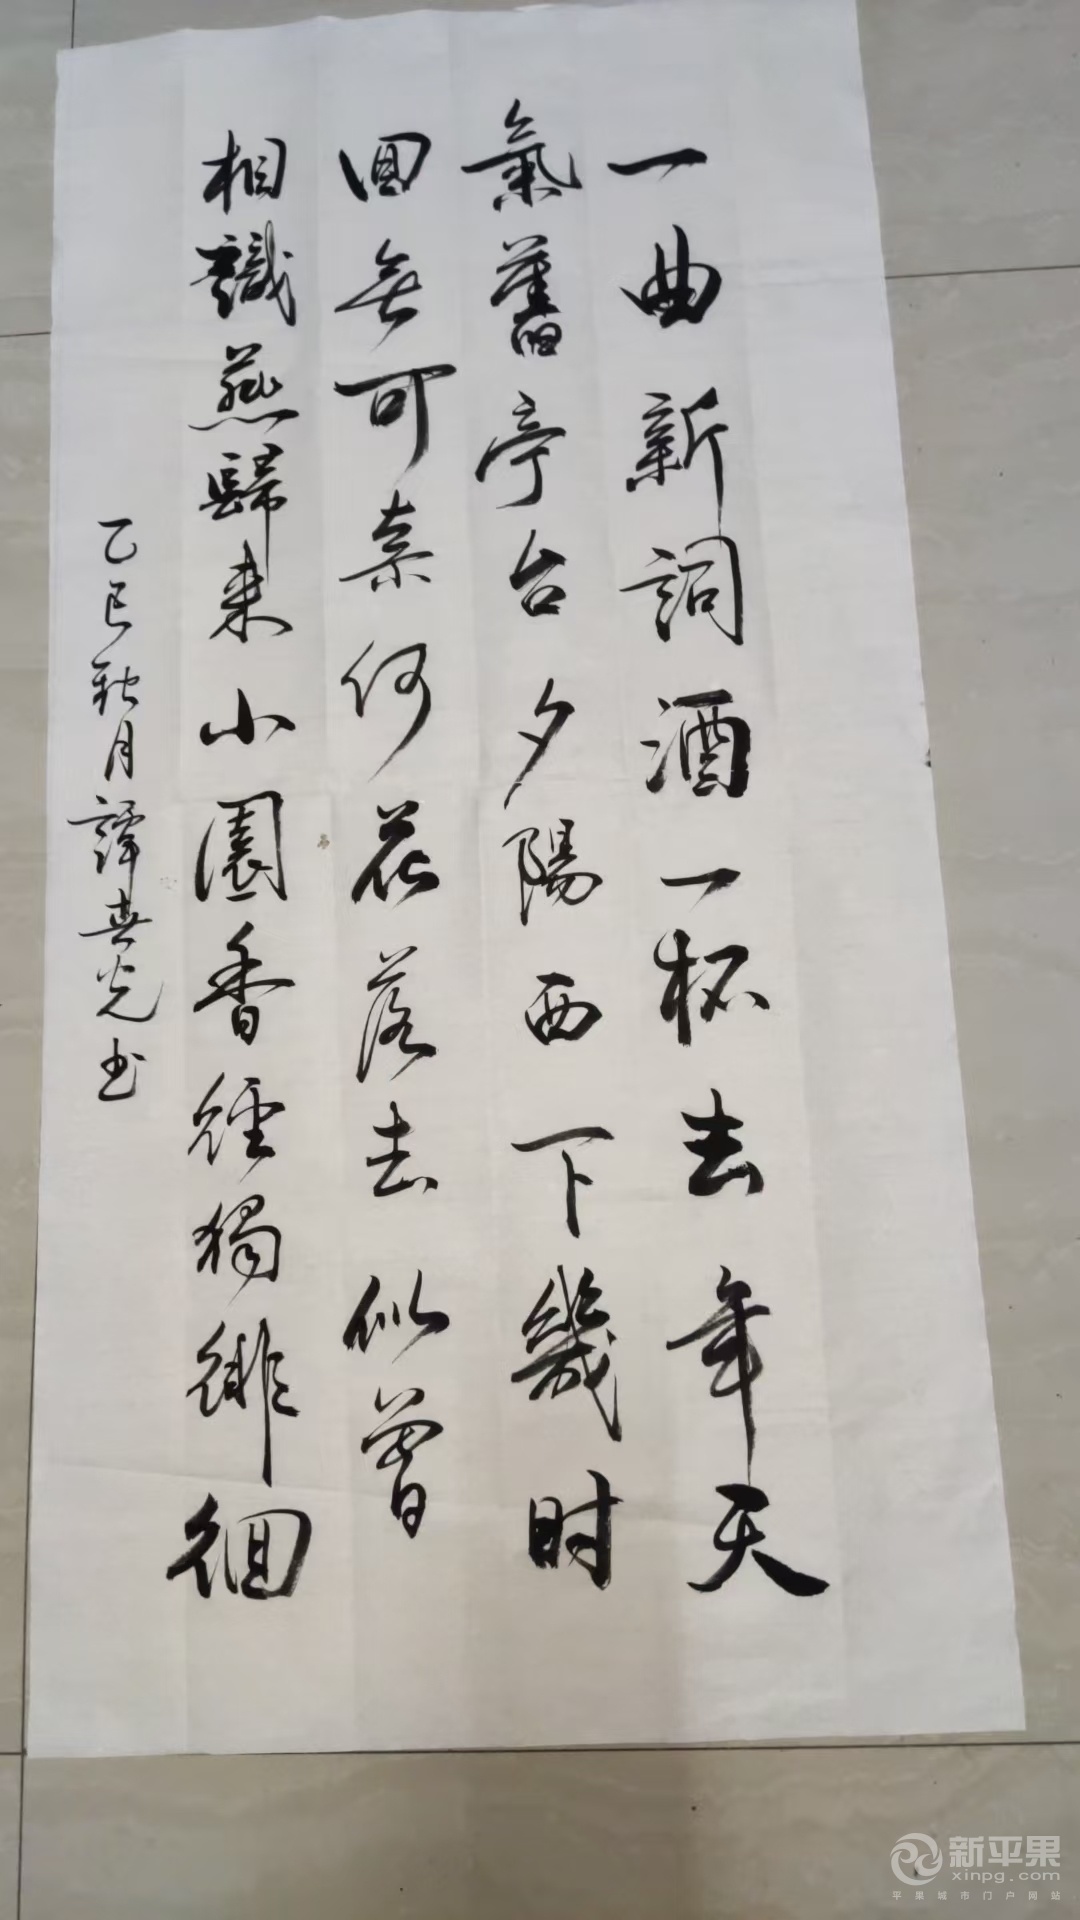 一曲新詞酒一杯去年天
氣舊亭台夕陽西下幾时
回無可奈何花落去似曾
相識燕歸来小園香徑獨徘徊
乙巳秋月譚英光书
新平果
xinpg.com
平果城市门户网站